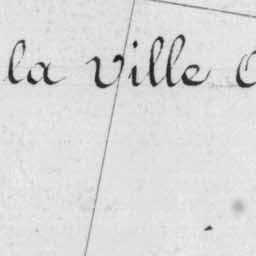 la ville